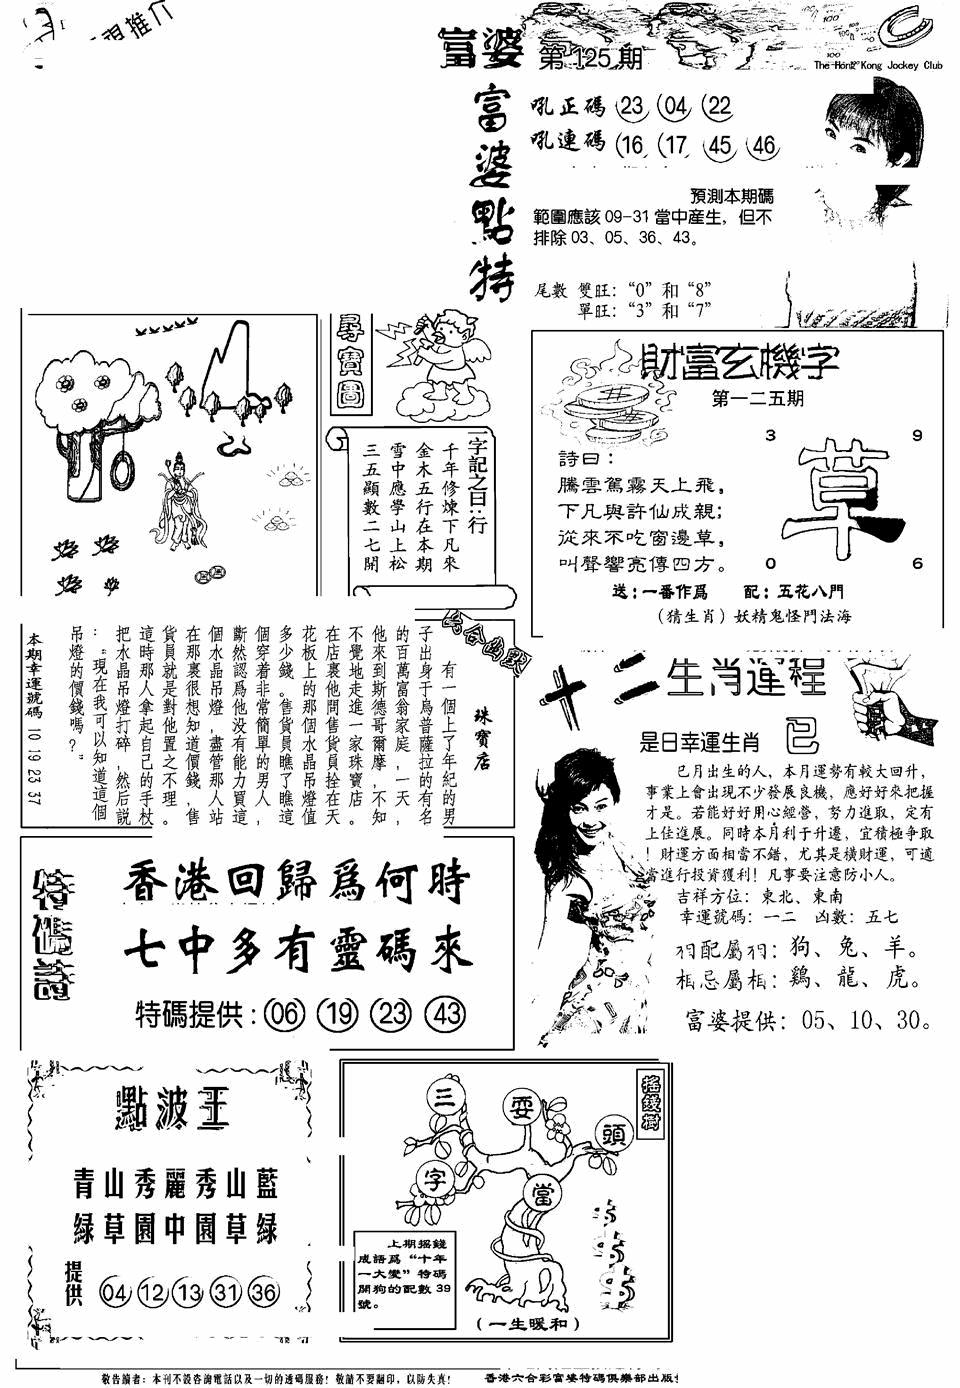 富婆 第125期
The Hong Kong Jockey Club
富婆點特
吼正碼 23 04 22
吼連碼 16 17 45 46
預測本期碼
範圍應該09-31當中産生，但不
排除03、05、36、43。
尾數 雙旺：“0”和“8”
單旺：“3”和“7”
尋寶圖
一字記之曰：行
千年修煉下凡來
金木五行在本期
雪中應學山上松
三五顯數二七開
財富玄機字
第一二五期
3 9
草
0 6
詩曰：
騰雲駕霧天上飛，
下凡與許仙成親；
從來不吃窗邊草，
叫聲響亮傳四方。
送：一番作爲 配：五花八門
（猜生肖）妖精鬼怪鬥法海
六合幽默
珠寶店
有一個上了年紀的男
子出身于烏普薩拉的有名
的百萬富翁家庭，一天，
他來到斯德哥爾摩，不知
不覺地走進一家珠寶店。
在店裏他開售貨員拴在天
花板上的那個水晶吊燈值
多少錢。售貨員瞧了瞧這
個穿着非常簡單的男人，
斷然認爲他没有能力買這
個水晶吊燈，盡管那人站
在那裏很想知道價錢，售
貨員就是對他置之不理。
這時那人拿起自己的手杖
把水晶吊燈打碎，然后説
：“現在我可以知道這個
吊燈的價錢嗎？”
本期幸運號碼 10 19 23 37
十二生肖運程
是日幸運生肖 巳
巳月出生的人，本月運勢有較大回升，
事業上會出現不少發展良機，應好好來把握
才是。若能好好用心經營，努力進取，定有
上佳進展。同時本月利于升遷，宜積極争取
！財運方面相當不錯，尤其是横財運，可適
當進行投資獲利！凡事要注意防小人。
吉祥方位：東北、東南
幸運號碼：一二 凶數：五七
相配屬相：狗、兔、羊。
相忌屬相：鷄、龍、虎。
富婆提供：05、10、30。
特碼詩
香港回歸爲何時
七中多有靈碼來
特碼提供：06 19 23 43
點波王
青山秀麗秀山藍
緑草園中園草緑
提供 04 12 13 31 36
摇錢樹
三 耍 頭
字 當
上期摇錢
成語爲“十年
一大變”特碼
開狗的配數39
號。
（一生暖和）
敬告讀者：本刊不設咨詢電話以及一切的透碼服務！敬請不要翻印，以防失真！
香港六合彩富婆特碼俱樂部出版